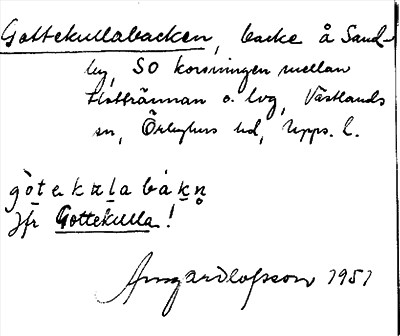 Gottekullabacken, backe å Sand-
by, SO korsningen mellan
Flottrännan o. lvg, Västlands
sn, Örbyhus hd, Upps. l.
gòtekulabákn̥
Jfr Gottekulla!
Olofsson 1951